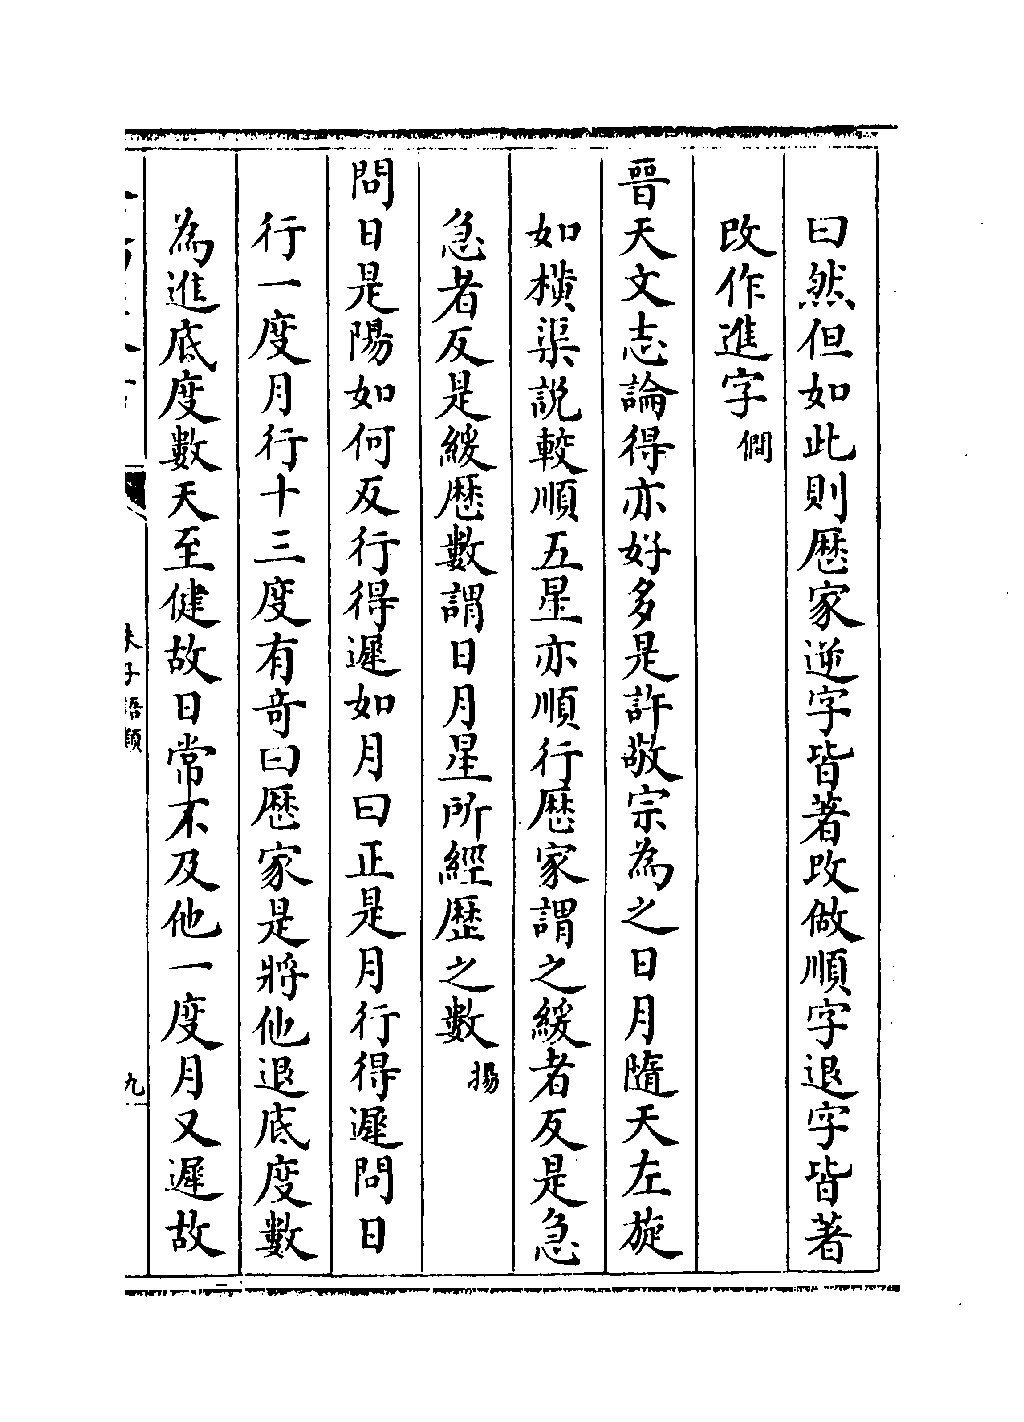 曰然但如此則厯家逆字皆著改做順字退字皆著
改作進字 僩
晉天文志論得亦好多是許敬宗為之日月隨天左旋
如橫渠說較順五星亦順行厯家謂之緩者反是急
急者反是緩厯數謂日月星所經歷之數 揚
問日是陽如何反行得遲如月曰正是月行得遲問日
行一度月行十三度有奇曰厯家是將他退底度數
為進底度數天至健故日常不及他一度月又遲故
朱子語類
九